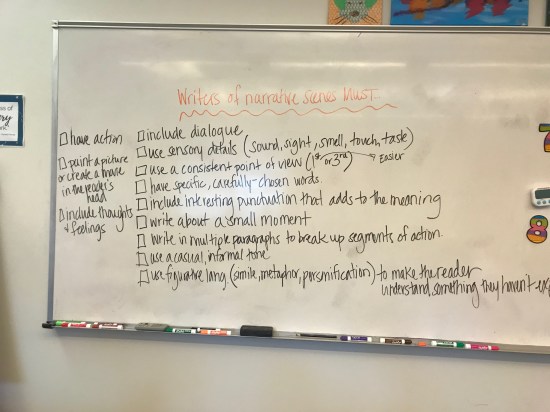 Writers of narrative scenes MUST:
□ have action
□ paint a picture
or create a movie
in the reader's
head
□ include thoughts
+ feelings
□ include dialogue
□ use sensory details (sound, sight, smell, touch, taste)
□ use a consistent point of view (1st or 3rd) → Easier
□ have specific, carefully-chosen words.
□ include interesting punctuation that adds to the meaning
□ write about a small moment
□ write in multiple paragraphs to break up segments of action.
□ use a casual, informal tone
□ use figurative lang. (simile, metaphor, personification) to make the reader
understand something they haven't
7
8